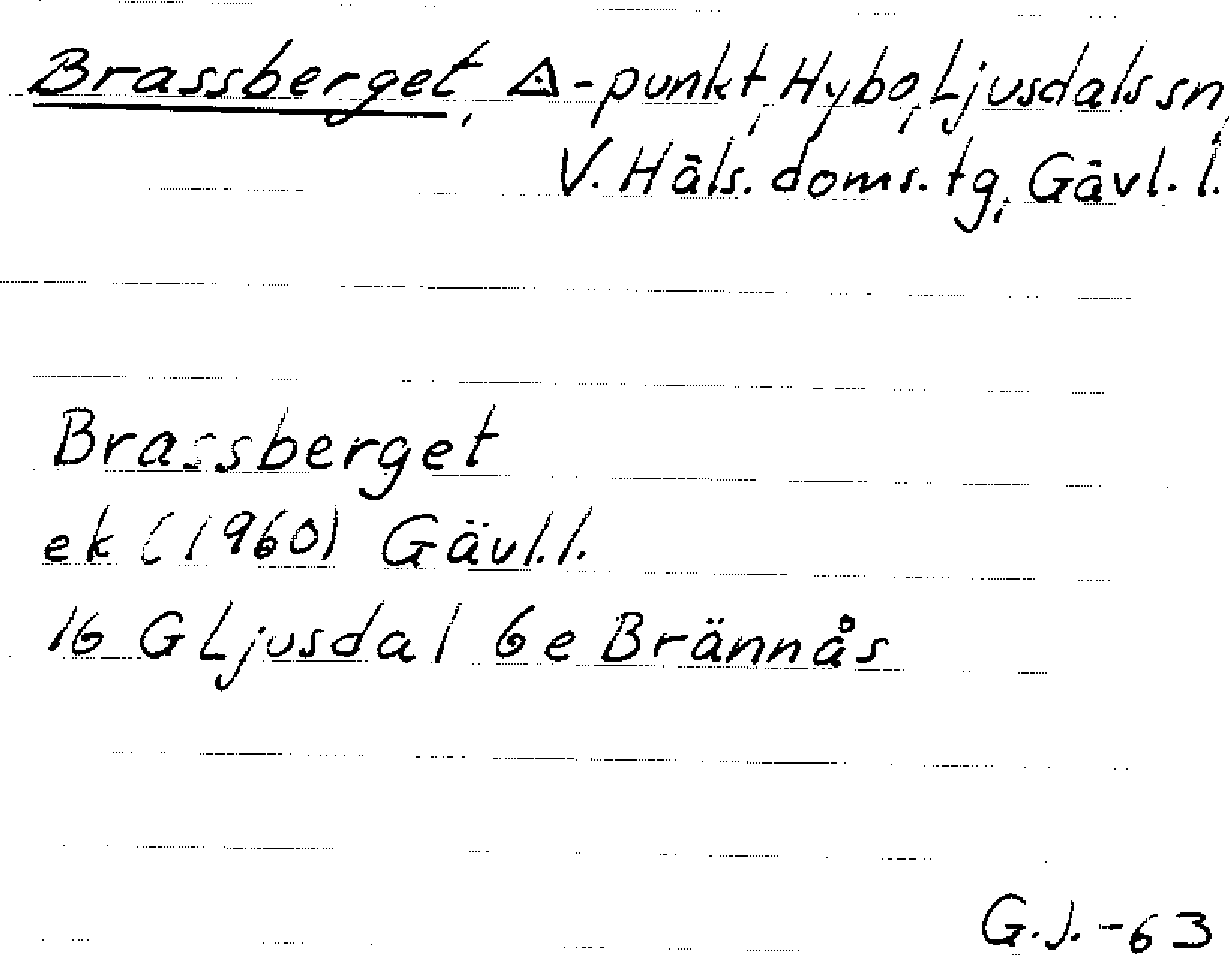 Brassberget, △-punkt, Hybo, Ljusdals sn,
V. Häls. doms. tg, Gävl. l.
Brassberget
ek (1960) Gävl. l.
16 G Ljusdal 6e Brännås
G.J. -63